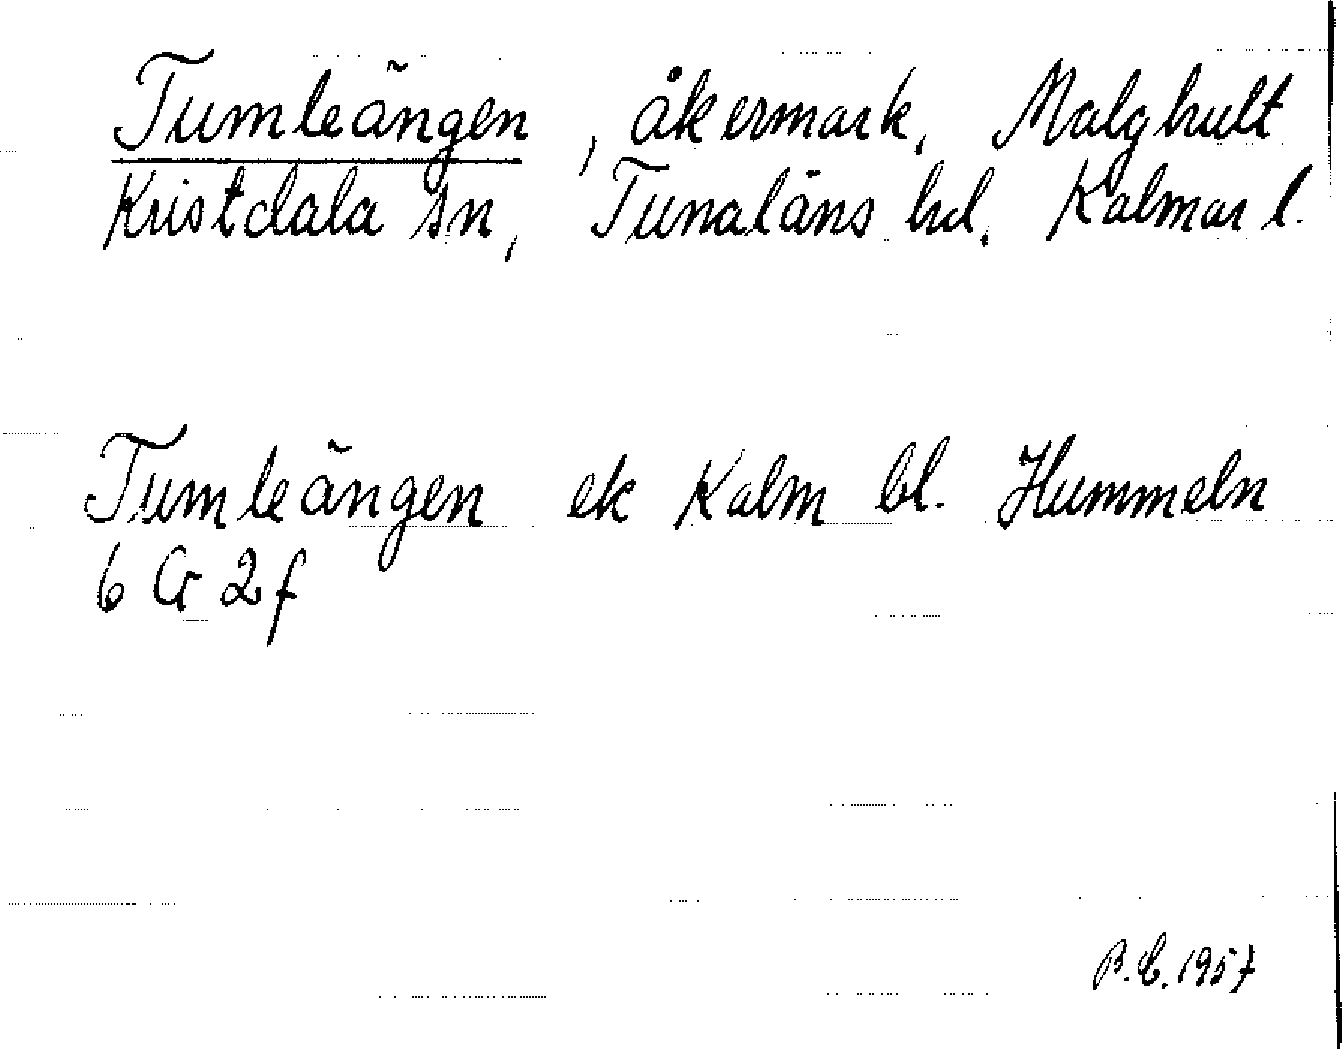 Tumleängen, åkermark, Malghult
Kristdala sn, Tunaläns hd. Kalmar l.
Tumleängen ek Kalm bl. Hummeln
6 G 2f
B.E. 1957